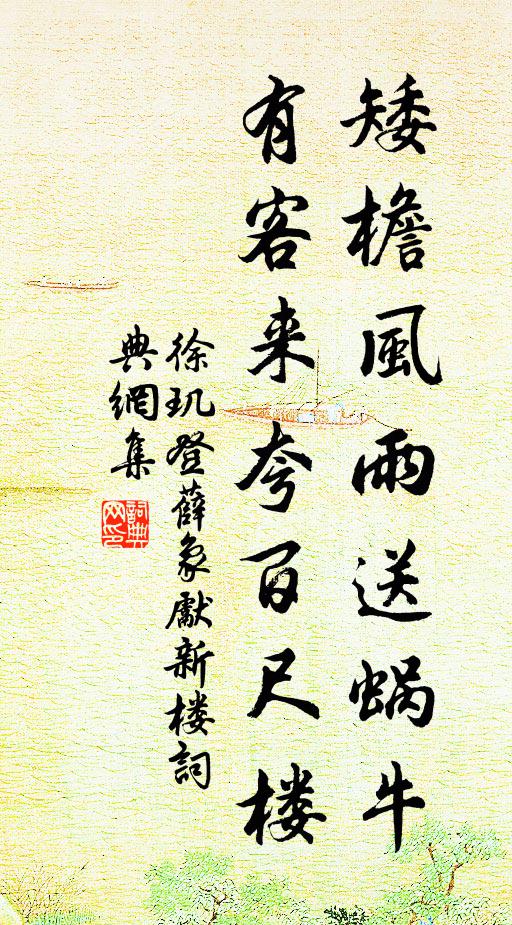 矮檐風雨送蜗牛
有客来夸百尺楼
徐玑登薛象獻新楼詞
典網集
詞典
网印